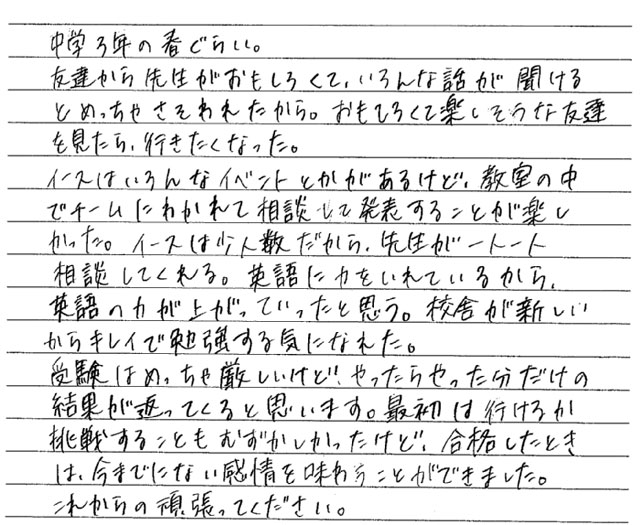 中学3年の春ぐらい。
友達から先生がおもしろくて、いろんな話が聞ける
とめっちゃさそわれたから。おもしろくて楽しそうな友達
を見たら、行きたくなった。
イースはいろんなイベントとかがあるけど、教室の中
でチームにわかれて相談して発表することが楽し
かった。イースは少人数だから、先生が一人一人
相談してくれる。英語に力をいれているから、
英語の力が上がっていったと思う。校舎が新しい
からキレイで勉強する気になれた。
受験はめっちゃ厳しいけど、やったらやった分だけの
結果が返ってくると思います。最初は行けるか
挑戦することもむずかしかったけど、合格したとき
は、今までにない感情を味わうことができました。
これからの頑張ってください。